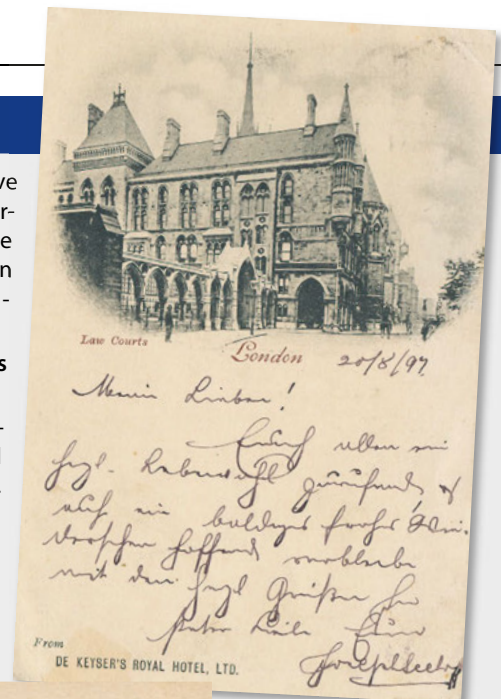 ve
r-
e
n
-
s
-
Law Courts
London
20/8/97
Meine Lieben!
Euch allen ein
herzl. Lebewohl zurufend, &
auf ein baldiges frohes Wie-
dersehen hoffend verbleibe
mit den herzl Grüßen
Euer
From
DE KEYSER'S ROYAL HOTEL, LTD.